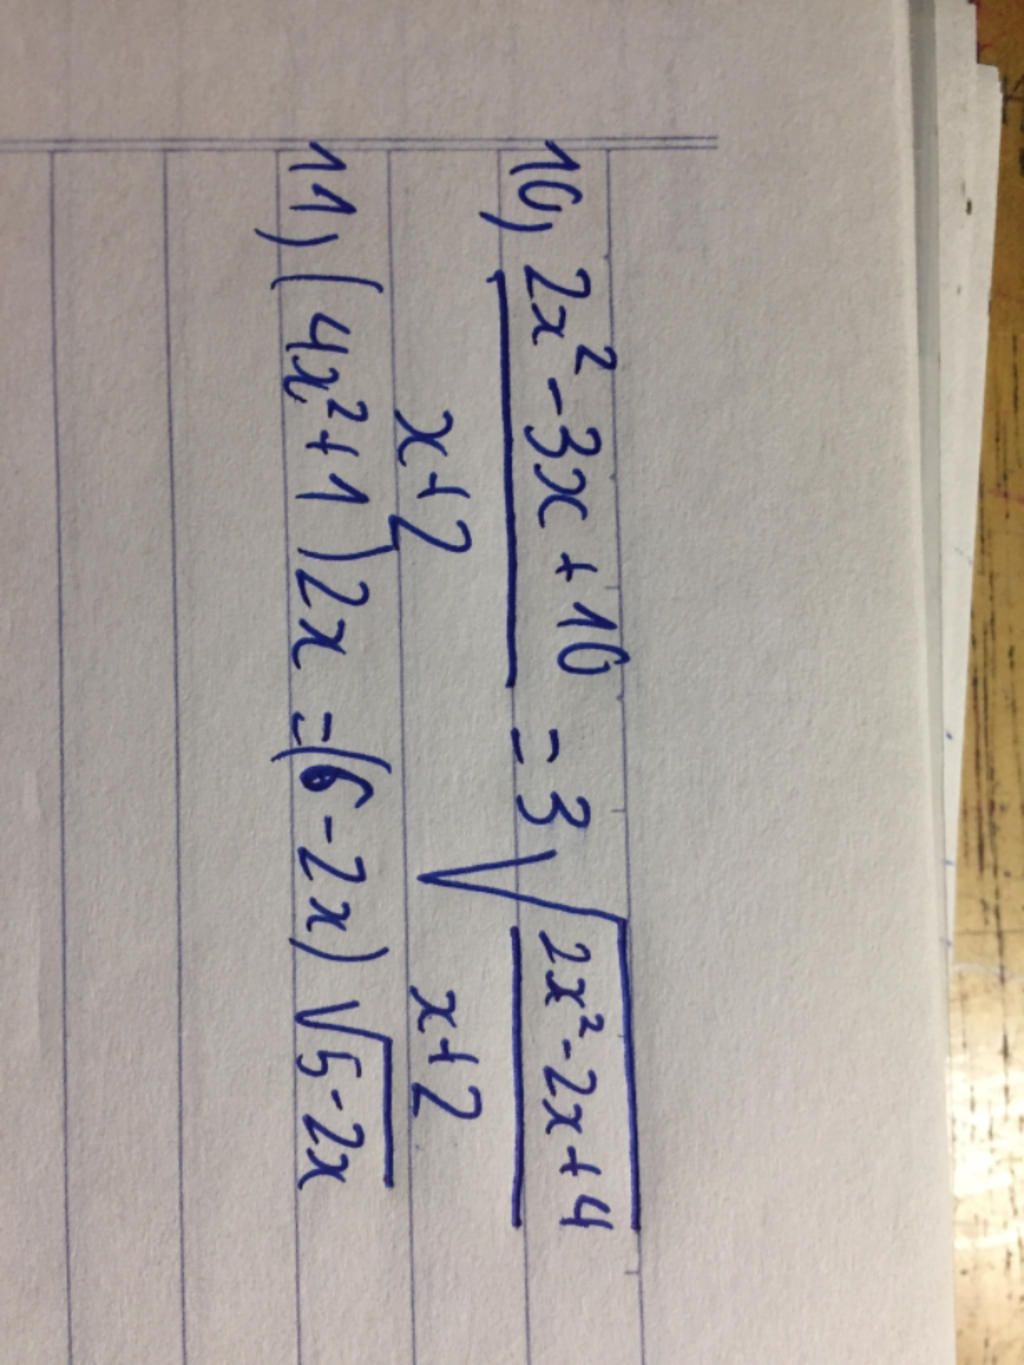 10, 2x² - 3x + 10 = 3 √ 2x² - 2x + 4
x+2 x+2
11, (4x² + 1) 2x = (6 - 2x) √5 - 2x